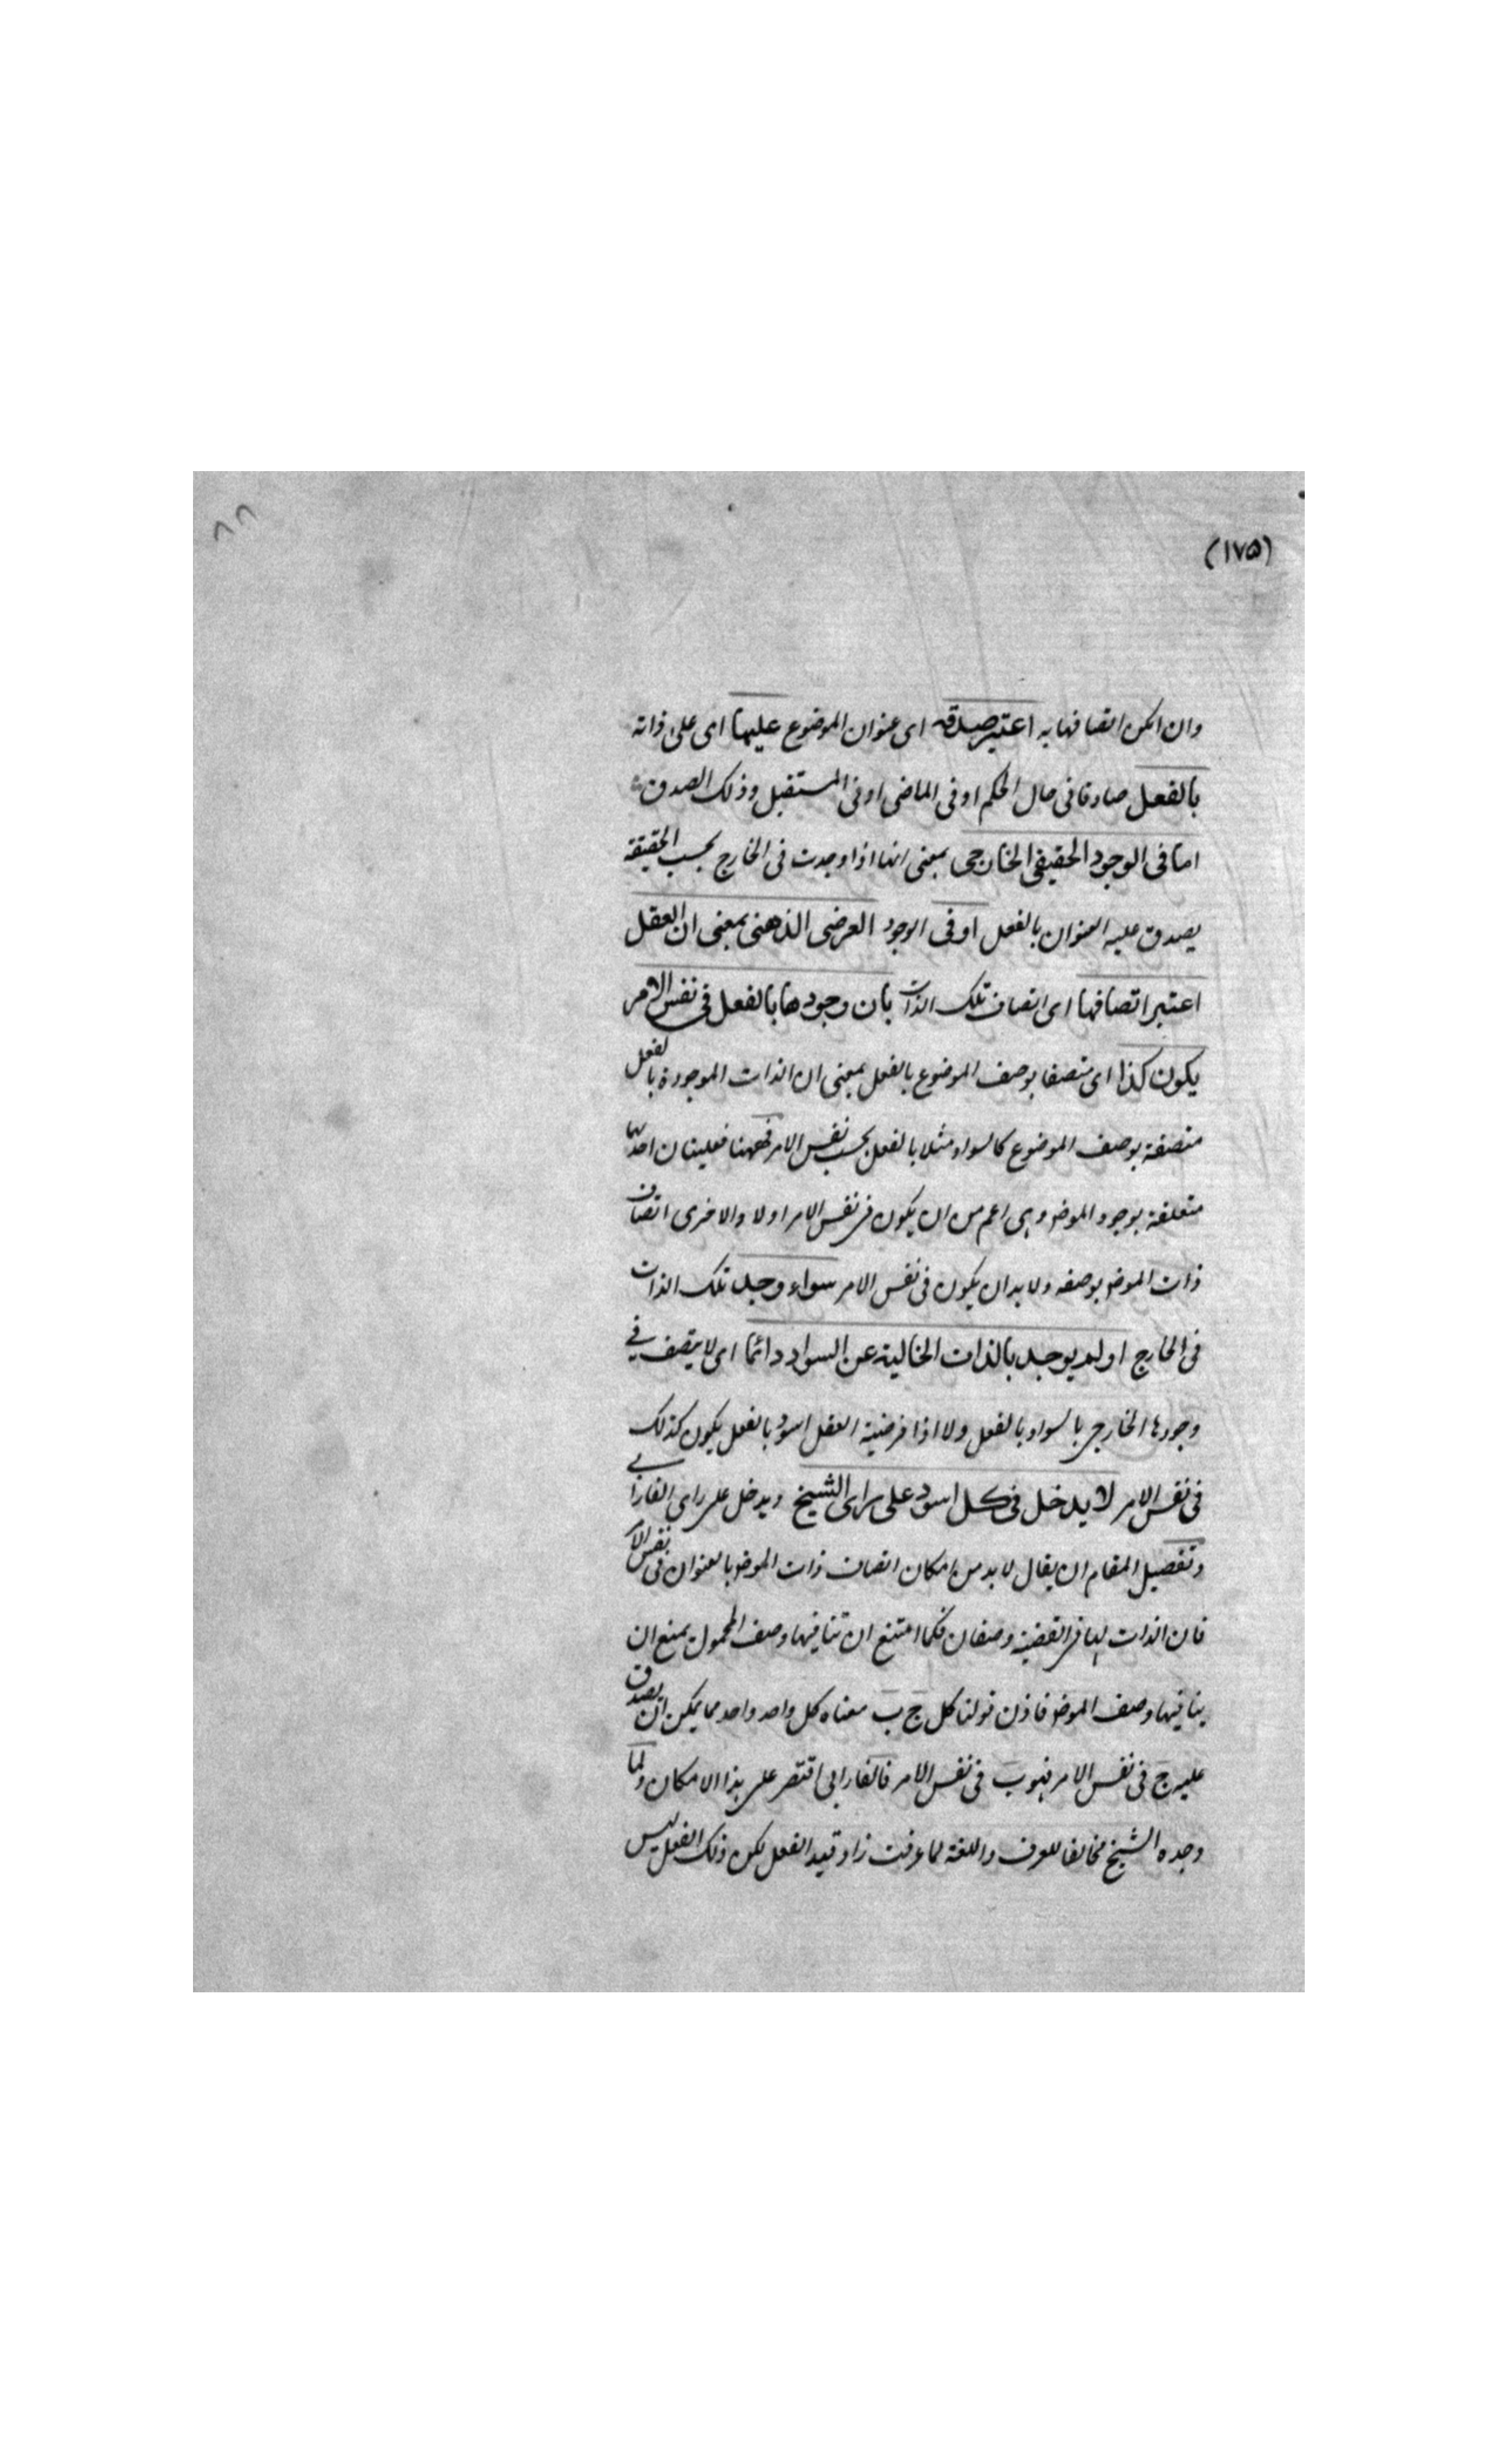 (١٧٥)
٨٨
وان امكن اتصافها به اعتبر صدقه اى عنوان الموضوع عليها اى على ذاته
بالفعل صادقا فى حال الحكم او فى الماضى او فى المستقبل وذلك الصدق
اما فى الوجود الحقيقى الخارجى بمعنى انها اذا وجدت فى الخارج بحسب الحقيقة
يصدق عليه العنوان بالفعل او فى الوجود العرضى الذهنى بمعنى ان العقل
اعتبر اتصافها اى اتصاف تلك الذات بان وجودها بالفعل فى نفس الامر
يكون كذا اى متصفا بوصف الموضوع بالفعل بمعنى ان الذات الموجودة بالفعل
متصفة بوصف الموضوع كالسواد مثلا بالفعل بحسب نفس الامر فههنا فعليتان احدهما
متعلقة بوجود الموضو وهى اعم من ان يكون فى نفس الامر اولا والاخرى اتصاف
ذات الموضو بوصفه ولا بد ان يكون فى نفس الامر سواء وجد تلك الذات
فى الخارج او لم يوجد بالذات الخالية عن السواد دائما اى لا يتصف فى
وجودها الخارجى بالسواد بالفعل ولا اذا فرضية العقل اسود بالفعل يكون كذلك
فى نفس الامر لا يدخل فى كل اسود على راى الشيخ ويدخل على راى الفارابى
وتفصيل المقام ان يقال لا بد من امكان اتصاف ذات الموضو بالعنوان فى نفس الامر
فان الذات لها فى القضية وصفان فكما امتنع ان تنافيها وصف المحمول يمنع ان
ينافيها وصف الموضو فاذن قولنا كل ج ب معناه كل واحد واحد مما يمكن ان يصدق
عليه ج فى نفس الامر فهو ب فى نفس الامر فالفارابى اقتصر على هذا الامكان ولما
وجده الشيخ مخالفا للعرف واللغة لما عرفت زاد قيد الفعل لكن ذلك الفعل ليس